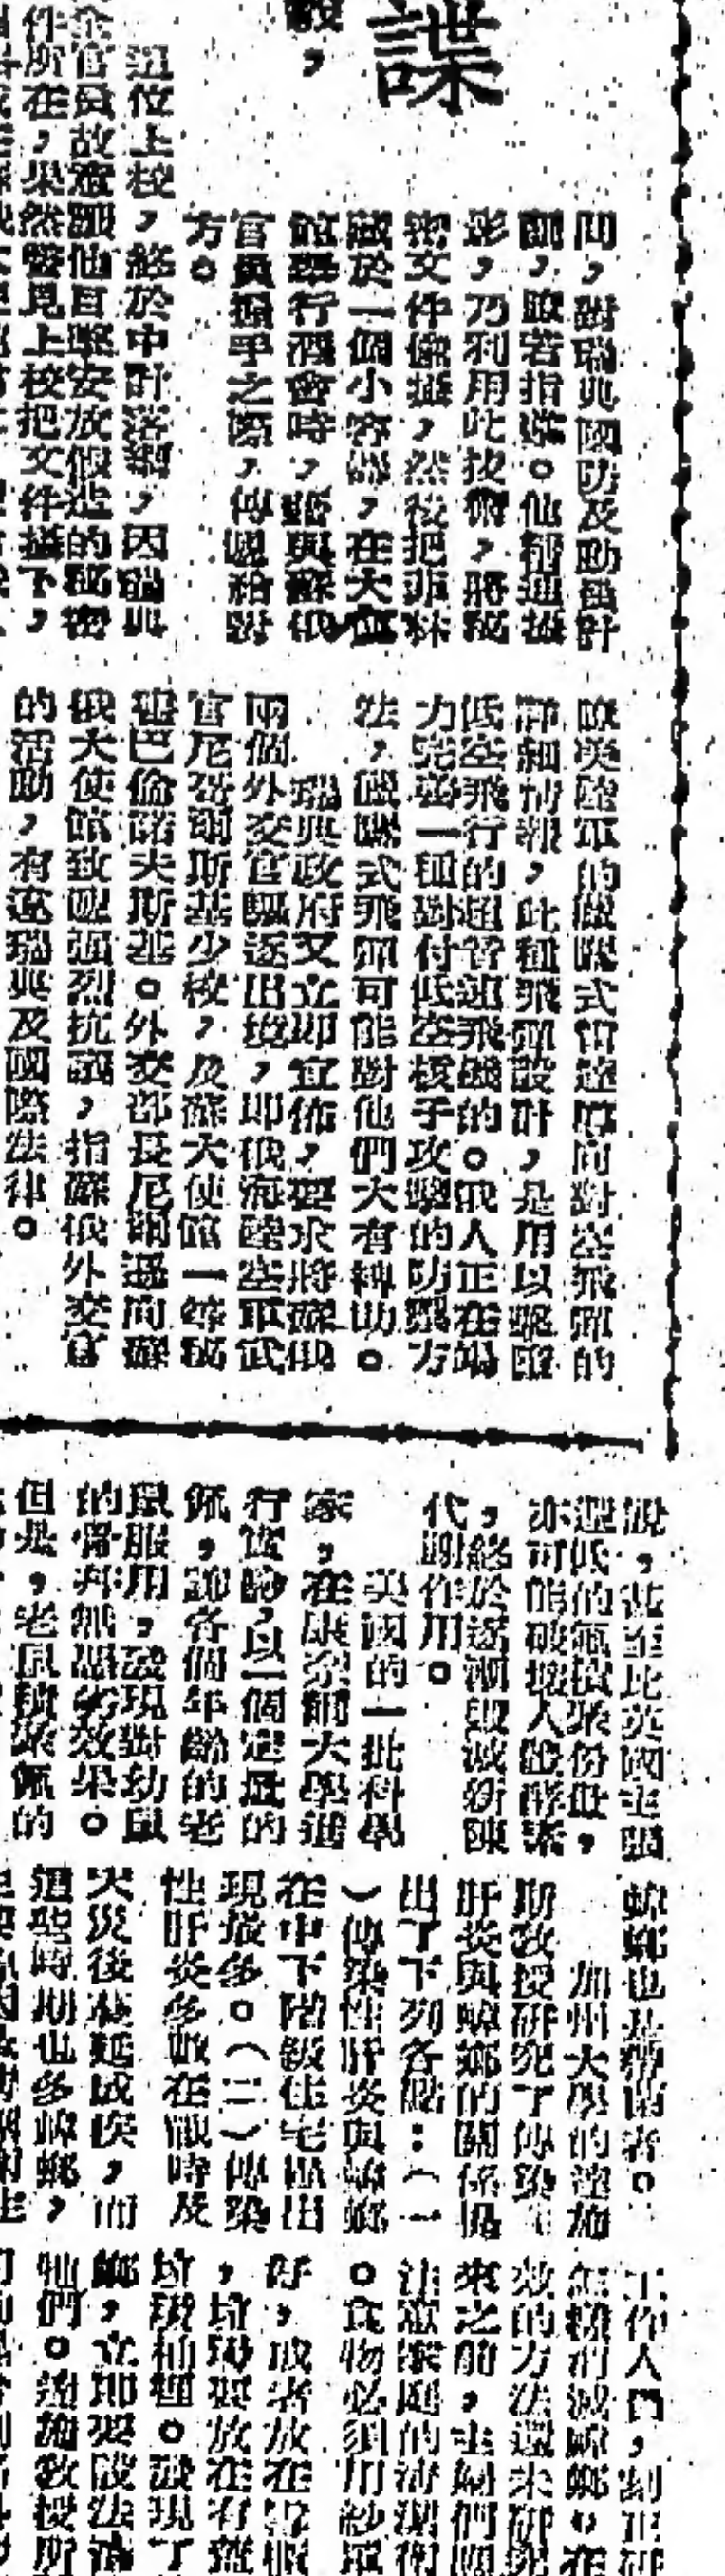 諜
間，對瑞典國防及動員計
劃，瞭若指掌。他精通攝
影，乃利用此技術，將秘
密文件偷攝，然後把菲林
藏於一個小容器，在大使
館舉行酒會時，能與蘇俄
官員握手之際，傳遞給對
方。
這位上校，終於中計落網，因瑞典
官員故意讓他目擊安放假造的秘密
件所在，果然瞥見上校把文件攝下，
美陸軍的鷹式雷達導向對空飛彈的
詳細情報，此種飛彈設計，是用以擊墮
低空飛行的超音速飛機的。俄人正在竭
力完善一種對付低空核子攻擊的防禦方
法，鷹式飛彈可能對他們大有裨助。
瑞典政府又立即宣佈，要求將蘇俄
兩個外交官驅逐出境，即俄海陸空軍武
官尼哥爾斯基少校，及蘇大使館一等秘
書巴倫諾夫斯基。外交部長尼爾遜向蘇
俄大使館致送强烈抗議，指蘇俄外交官
的活動，有違瑞典及國際法律。
說，甚至比英國主張
還低的氟積聚份量，
亦可能破壞人體酵素
，終於逐漸毀滅新陳
代謝作用。
美國的一批科學
家，在康奈爾大學進
行實驗，以一個定量的
氟，給各個年齡的老
鼠服用，發現對幼鼠
的骨并無惡劣效果。
但是，老鼠積聚氟的
蟑螂也是帶菌者。
加州大學的達施
斯教授研究了傳染性
肝炎與蟑螂的關係提
出了下列各點：（一
）傳染性肝炎與蟑螂
在中下階級住宅區出
現最多。（二）傳染
性肝炎多數在戰時及
火災後蔓延成疾，而
這些時期也多蟑螂，
工作人員，刻正研
怎樣消滅蟑螂。在
效的方法還未研究
來之前，主婦們應
注意家庭的清潔衛
。食物必須用紗罩
好，或者放在雪櫃
，垃圾要放在有蓋
垃圾桶裡。發現了
螂，立即要設法消
牠們。達施教授所